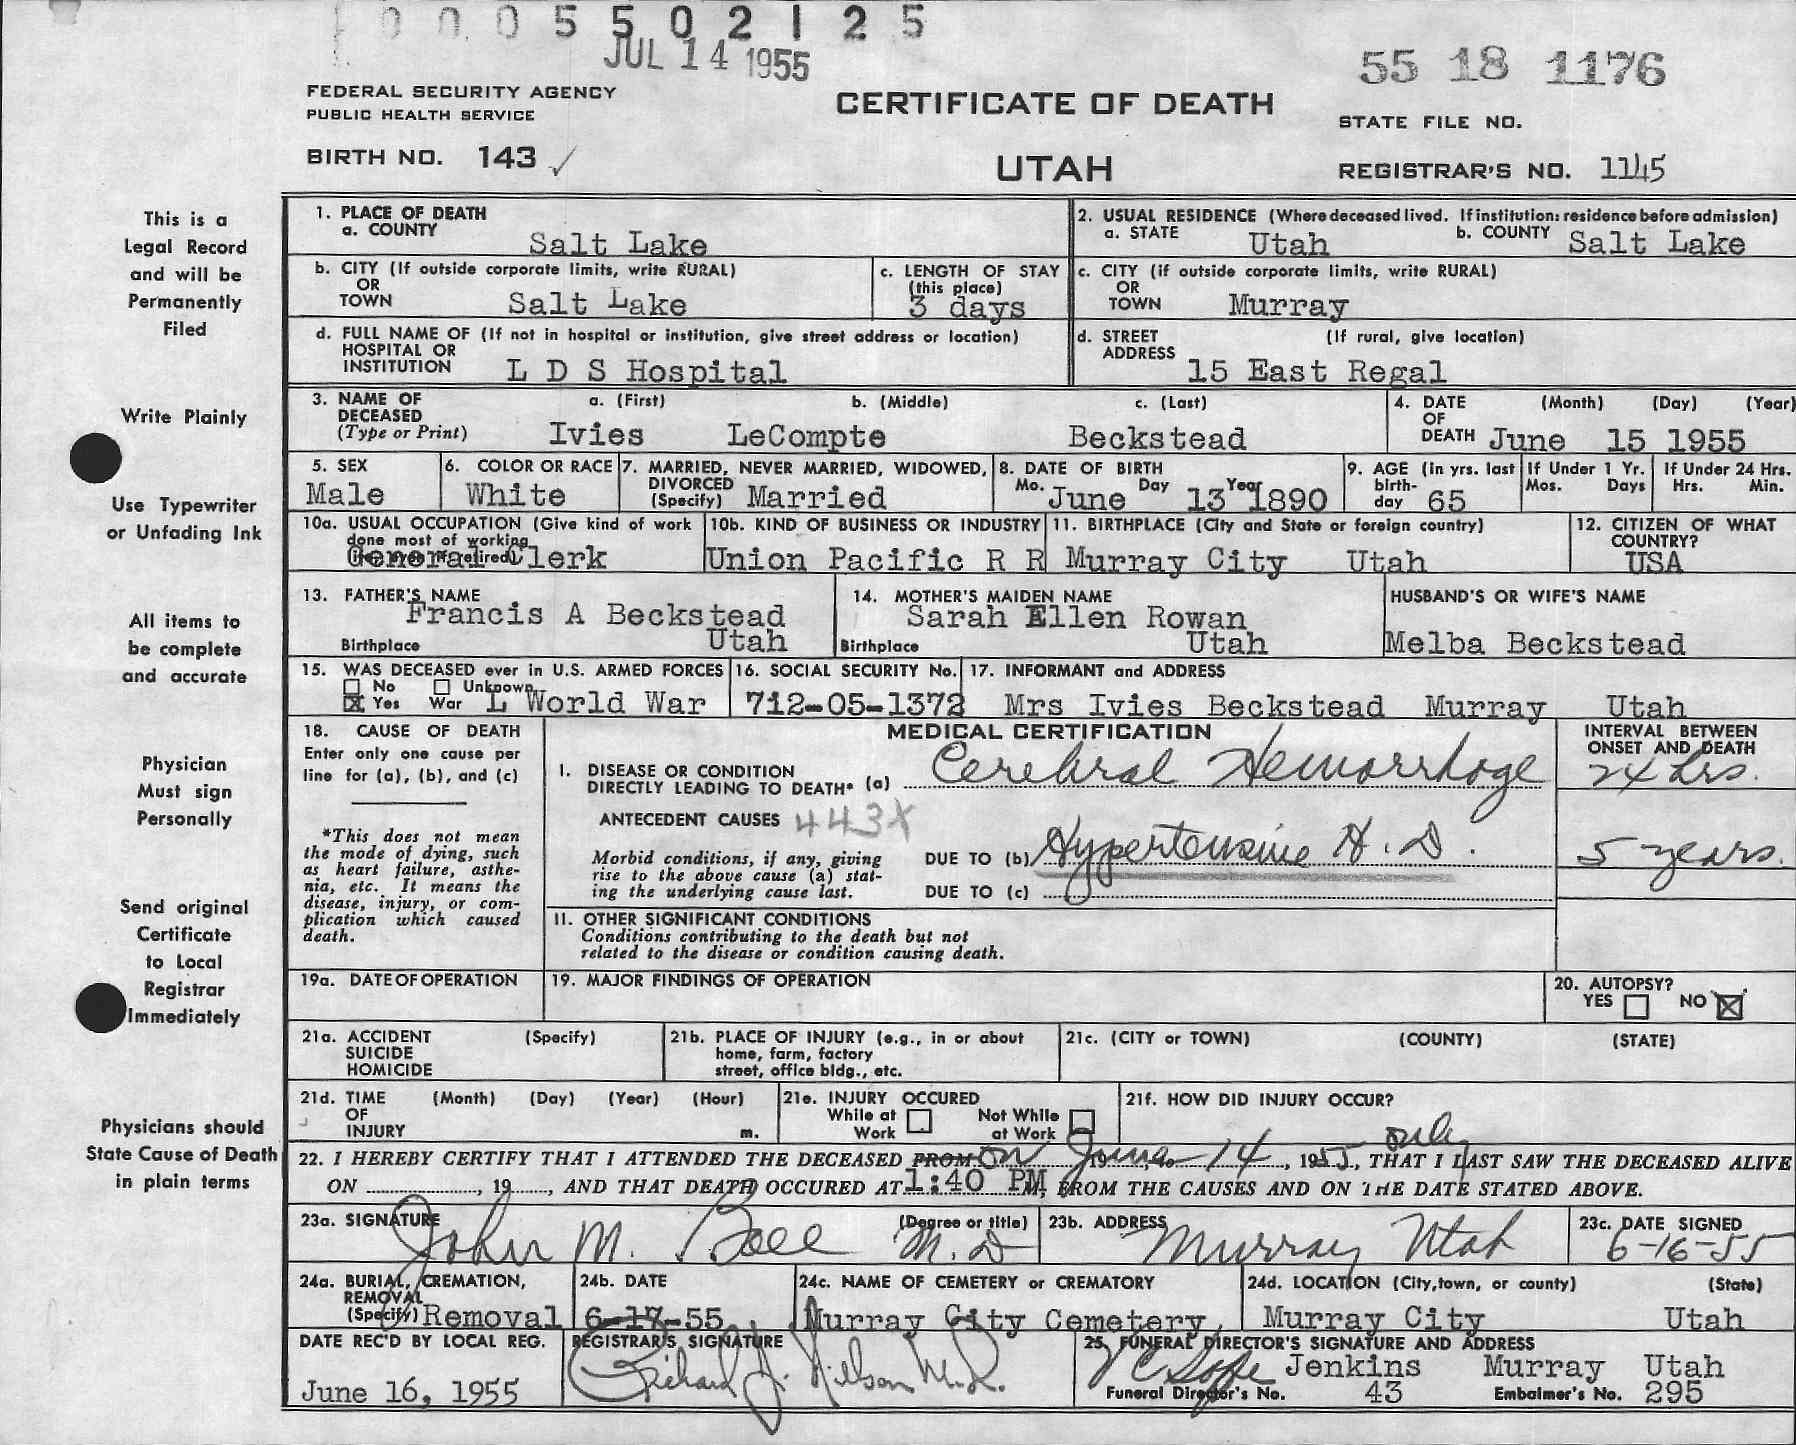 0005502125
JUL 14 1955
55 18 1176
FEDERAL SECURITY AGENCY
PUBLIC HEALTH SERVICE
CERTIFICATE OF DEATH
STATE FILE NO.
BIRTH NO. 143 ✓
UTAH
REGISTRAR'S NO. 1145
This is a
Legal Record
and will be
Permanently
Filed
Write Plainly
Use Typewriter
or Unfading Ink
All items to
be complete
and accurate
Physician
Must sign
Personally
Send original
Certificate
to Local
Registrar
Immediately
Physicians should
State Cause of Death
in plain terms
1. PLACE OF DEATH
a. COUNTY Salt Lake
2. USUAL RESIDENCE (Where deceased lived. If institution: residence before admission)
a. STATE Utah b. COUNTY Salt Lake
b. CITY (If outside corporate limits, write RURAL)
OR
TOWN Salt Lake
c. LENGTH OF STAY
(this place)
3 days
c. CITY (if outside corporate limits, write RURAL)
OR
TOWN Murray
d. FULL NAME OF (If not in hospital or institution, give street address or location)
HOSPITAL OR
INSTITUTION L D S Hospital
d. STREET (If rural, give location)
ADDRESS
15 East Regal
3. NAME OF a. (First) b. (Middle) c. (Last)
DECEASED
(Type or Print) Ivies LeCompte Beckstead
4. DATE (Month) (Day) (Year)
OF
DEATH June 15 1955
5. SEX
Male
6. COLOR OR RACE
White
7. MARRIED, NEVER MARRIED, WIDOWED,
DIVORCED
(Specify) Married
8. DATE OF BIRTH
Mo. Day Year
June 13 1890
9. AGE (in yrs. last
birth-
day 65
If Under 1 Yr.
Mos. Days
If Under 24 Hrs.
Hrs. Min.
10a. USUAL OCCUPATION (Give kind of work
done most of working
General Clerk
10b. KIND OF BUSINESS OR INDUSTRY
Union Pacific R R
11. BIRTHPLACE (City and State or foreign country)
Murray City Utah
12. CITIZEN OF WHAT
COUNTRY?
USA
13. FATHER'S NAME
Francis A Beckstead
Birthplace Utah
14. MOTHER'S MAIDEN NAME
Sarah Ellen Rowan
Birthplace Utah
HUSBAND'S OR WIFE'S NAME
Melba Beckstead
15. WAS DECEASED ever in U.S. ARMED FORCES
No Unknown
Yes War L World War
16. SOCIAL SECURITY No.
712-05-1372
17. INFORMANT and ADDRESS
Mrs Ivies Beckstead Murray Utah
18. CAUSE OF DEATH
Enter only one cause per
line for (a), (b), and (c)
*This does not mean
the mode of dying, such
as heart failure, asthe-
nia, etc. It means the
disease, injury, or com-
plication which caused
death.
MEDICAL CERTIFICATION
INTERVAL BETWEEN
ONSET AND DEATH
I. DISEASE OR CONDITION
DIRECTLY LEADING TO DEATH* (a) Cerebral Hemorrhage 24 hrs.
ANTECEDENT CAUSES 443X
Morbid conditions, if any, giving
rise to the above cause (a) stat-
ing the underlying cause last.
DUE TO (b) Hypertensive H. D. 5 years.
DUE TO (c)
II. OTHER SIGNIFICANT CONDITIONS
Conditions contributing to the death but not
related to the disease or condition causing death.
19a. DATE OF OPERATION
19. MAJOR FINDINGS OF OPERATION
20. AUTOPSY?
YES NO
21a. ACCIDENT (Specify)
SUICIDE
HOMICIDE
21b. PLACE OF INJURY (e.g., in or about
home, farm, factory
street, office bldg., etc.
21c. (CITY or TOWN) (COUNTY) (STATE)
21d. TIME (Month) (Day) (Year) (Hour)
OF
INJURY m.
21e. INJURY OCCURED
While at Not While
Work at Work
21f. HOW DID INJURY OCCUR?
only
22. I HEREBY CERTIFY THAT I ATTENDED THE DECEASED FROM On June 14, 1955, THAT I LAST SAW THE DECEASED ALIVE
ON , 19 , AND THAT DEATH OCCURED AT 1:40 PM, FROM THE CAUSES AND ON THE DATE STATED ABOVE.
23a. SIGNATURE (Degree or title)
John M. M.D
23b. ADDRESS
Murray Utah
23c. DATE SIGNED
6-16-55
24a. BURIAL, CREMATION,
REMOVAL
(Specify) Removal
24b. DATE
6-17-55
24c. NAME OF CEMETERY or CREMATORY
Murray City Cemetery,
24d. LOCATION (City, town, or county) (State)
Murray City Utah
DATE REC'D BY LOCAL REG.
June 16, 1955
REGISTRAR'S SIGNATURE
Richard J. Nielson M.D.
25. FUNERAL DIRECTOR'S SIGNATURE AND ADDRESS
Jenkins Murray Utah
Funeral Director's No. 43 Embalmer's No. 295